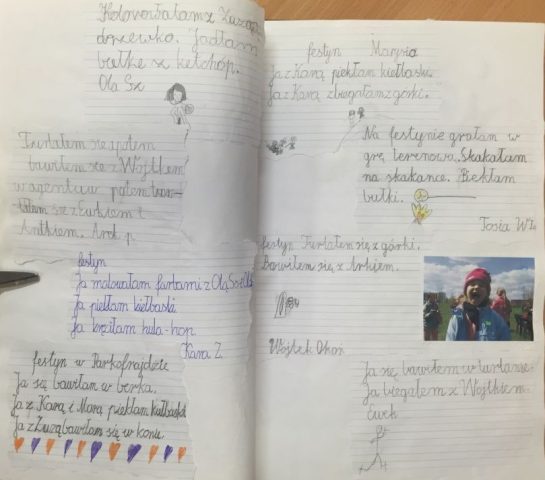 Kolorowałam z Zuzą
drzewko. Jadłam
bułkę z ketchóp.
Ola Sz
Turlałem się potem
bawiłem się z Wojtkiem
w agentów potem
się z Eurkiem i
Antkiem. Arek p.
festyn
Ja malowałam farbami z Olą
Ja piekłam kiełbaski.
Ja kręciłam hula-hop.
Kara Z.
festyn w
Ja się bawiłam w berka.
Ja z Karą i Marą piekłam kiełbaski
Ja z Zuzą bawiłam się w konie.
festyn Marysia
Ja z Karą piekłam kiełbaski.
Ja z Karą zbiegałam z górki.
Na festynie grałam w
grę terenową. Skakałam
na skakance. Piekłam
bułki.
Tosia W
festyn Turlałem się z górki.
Bawiłem się z Arkiem.
Wojtek Okoń
Ja się bawiłem w turlanie.
Ja biegałem z Wojtkiem.